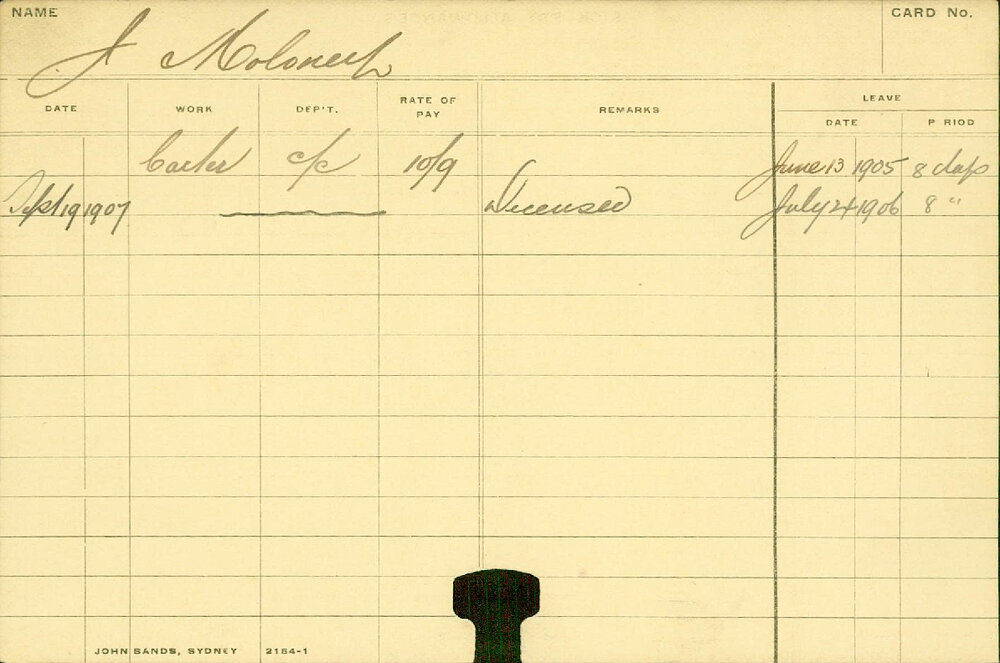 NAME
CARD No.
J Moloney
DATE WORK DEP'T. RATE OF PAY REMARKS LEAVE
DATE P RIOD
Carter c/c 10/9 June 13 1905 8 days
Sept 19 1907 Deceased July 24 1906 8 "
JOHN SANDS, SYDNEY 2154-1